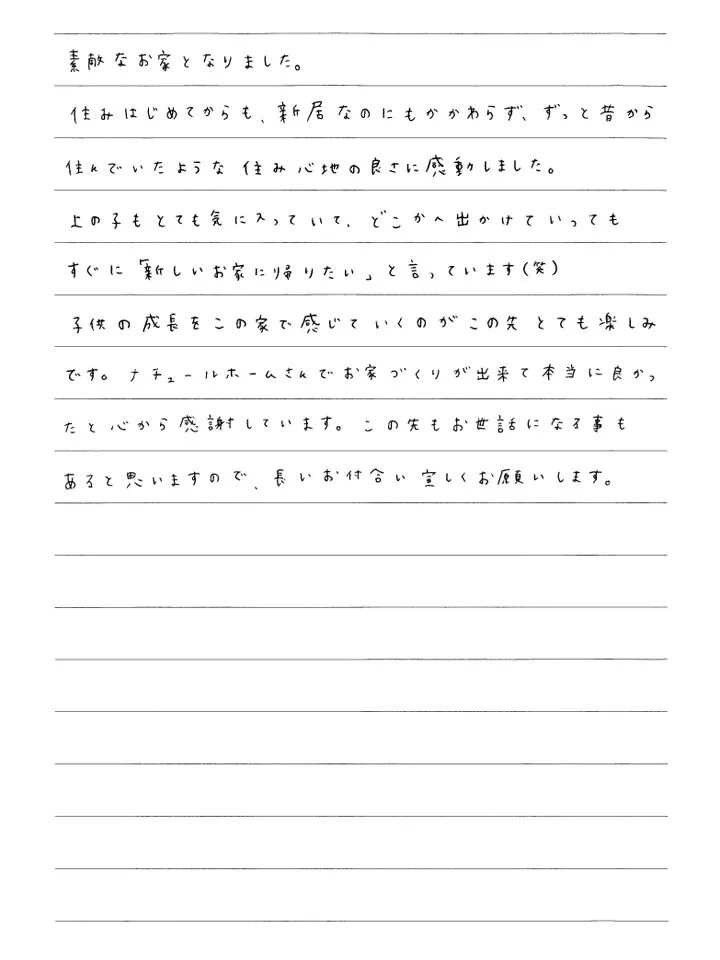 素敵なお家となりました。
住みはじめてからも、新居なのにもかかわらず、ずっと昔から
住んでいたような住み心地の良さに感動しました。
上の子もとても気に入っていて、どこかへ出かけていっても
すぐに「新しいお家に帰りたい」と言っています(笑)
子供の成長をこの家で感じていくのがこの先とても楽しみ
です。ナチュールホームさんでお家づくりが出来て本当に良かっ
たと心から感謝しています。この先もお世話になる事も
あると思いますので、長いお付合い宜しくお願いします。